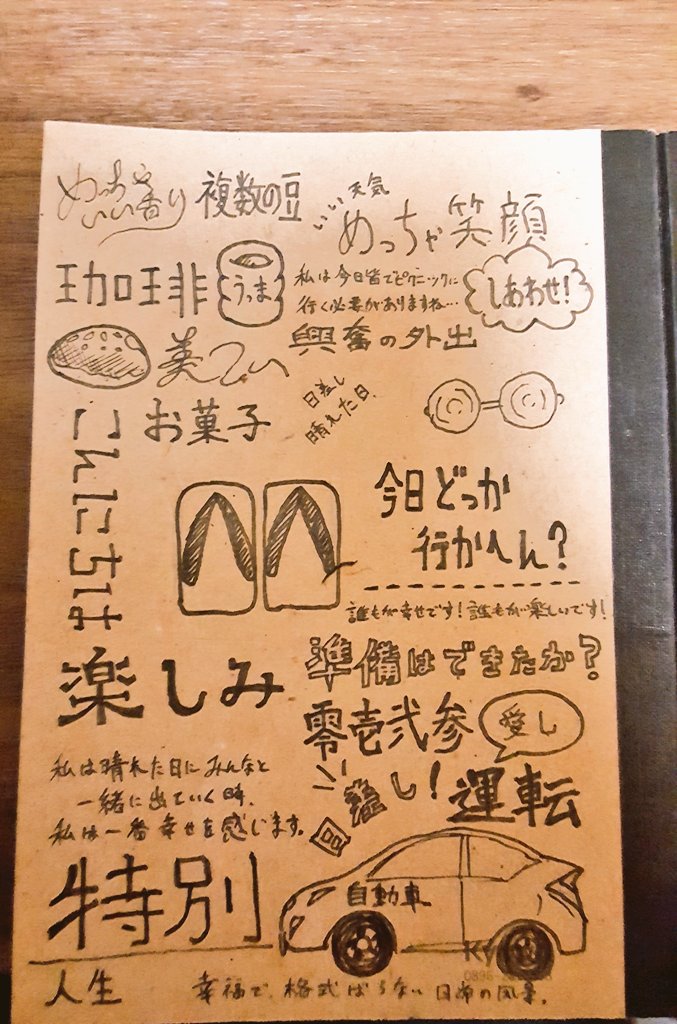 めっちゃ
いい香り
複数の豆
いい天気
めっちゃ笑顔
珈琲
うっま
私は今日皆でピクニックに
行く必要がありますね…
しあわせ!
興奮の外出
美
お菓子
日差し
晴れた日
こんにちは
今日どっか
行かへん?
誰もが幸せです!誰もが楽しいです!
楽しみ
準備はできたか?
零壱弐参
愛し
私は晴れた日にみんなと
一緒に出ていく時、
私は一番幸せを感じます。
し!
運転
特別
自動車
KY
0896
人生
幸福で、格式ばらない日常の風景。